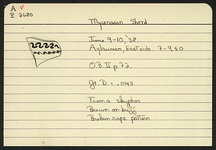 A
P 2680
Mycenaean Sherd
June 9-10, '38
Aglaurion, East side 7-9.50
O.B. II p. 72
gr. D. = .045
From a skyphos
Brown on buff
Broken rope pattern